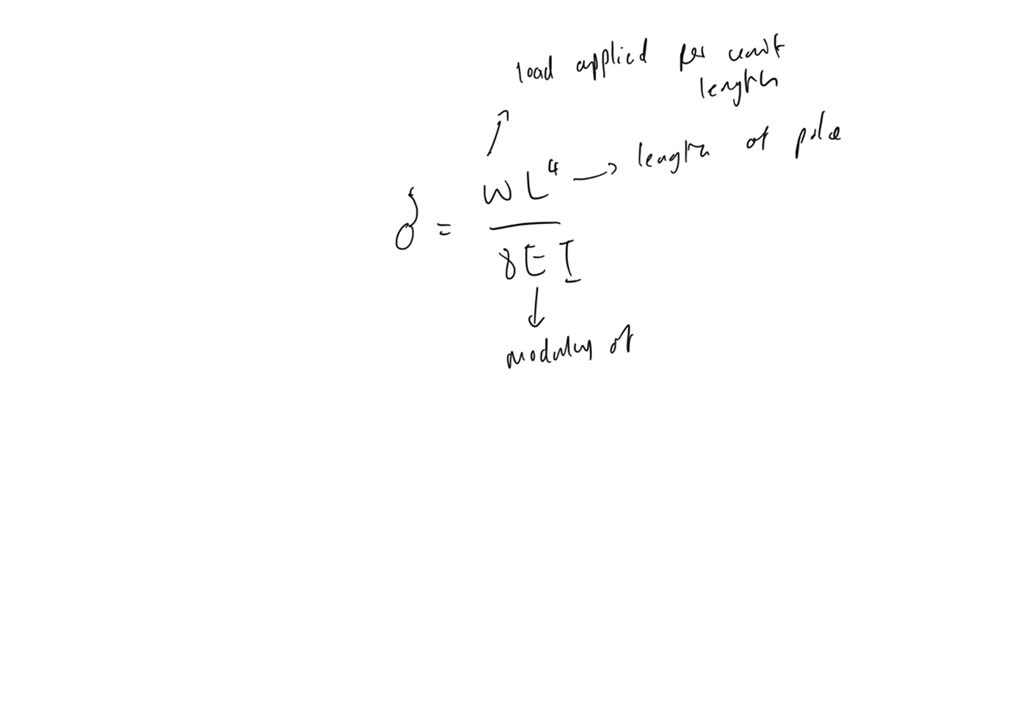 load applied per unit
length
δ = WL⁴ → length of pole
8EI
modulus of